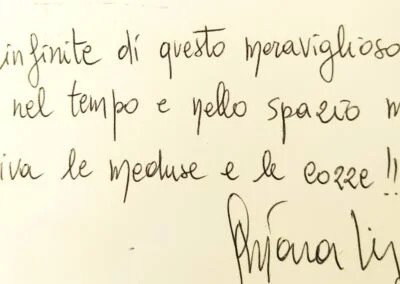 infinite di questo meraviglioso
nel tempo e nello spazio m
iva le meduse e le cozze !!